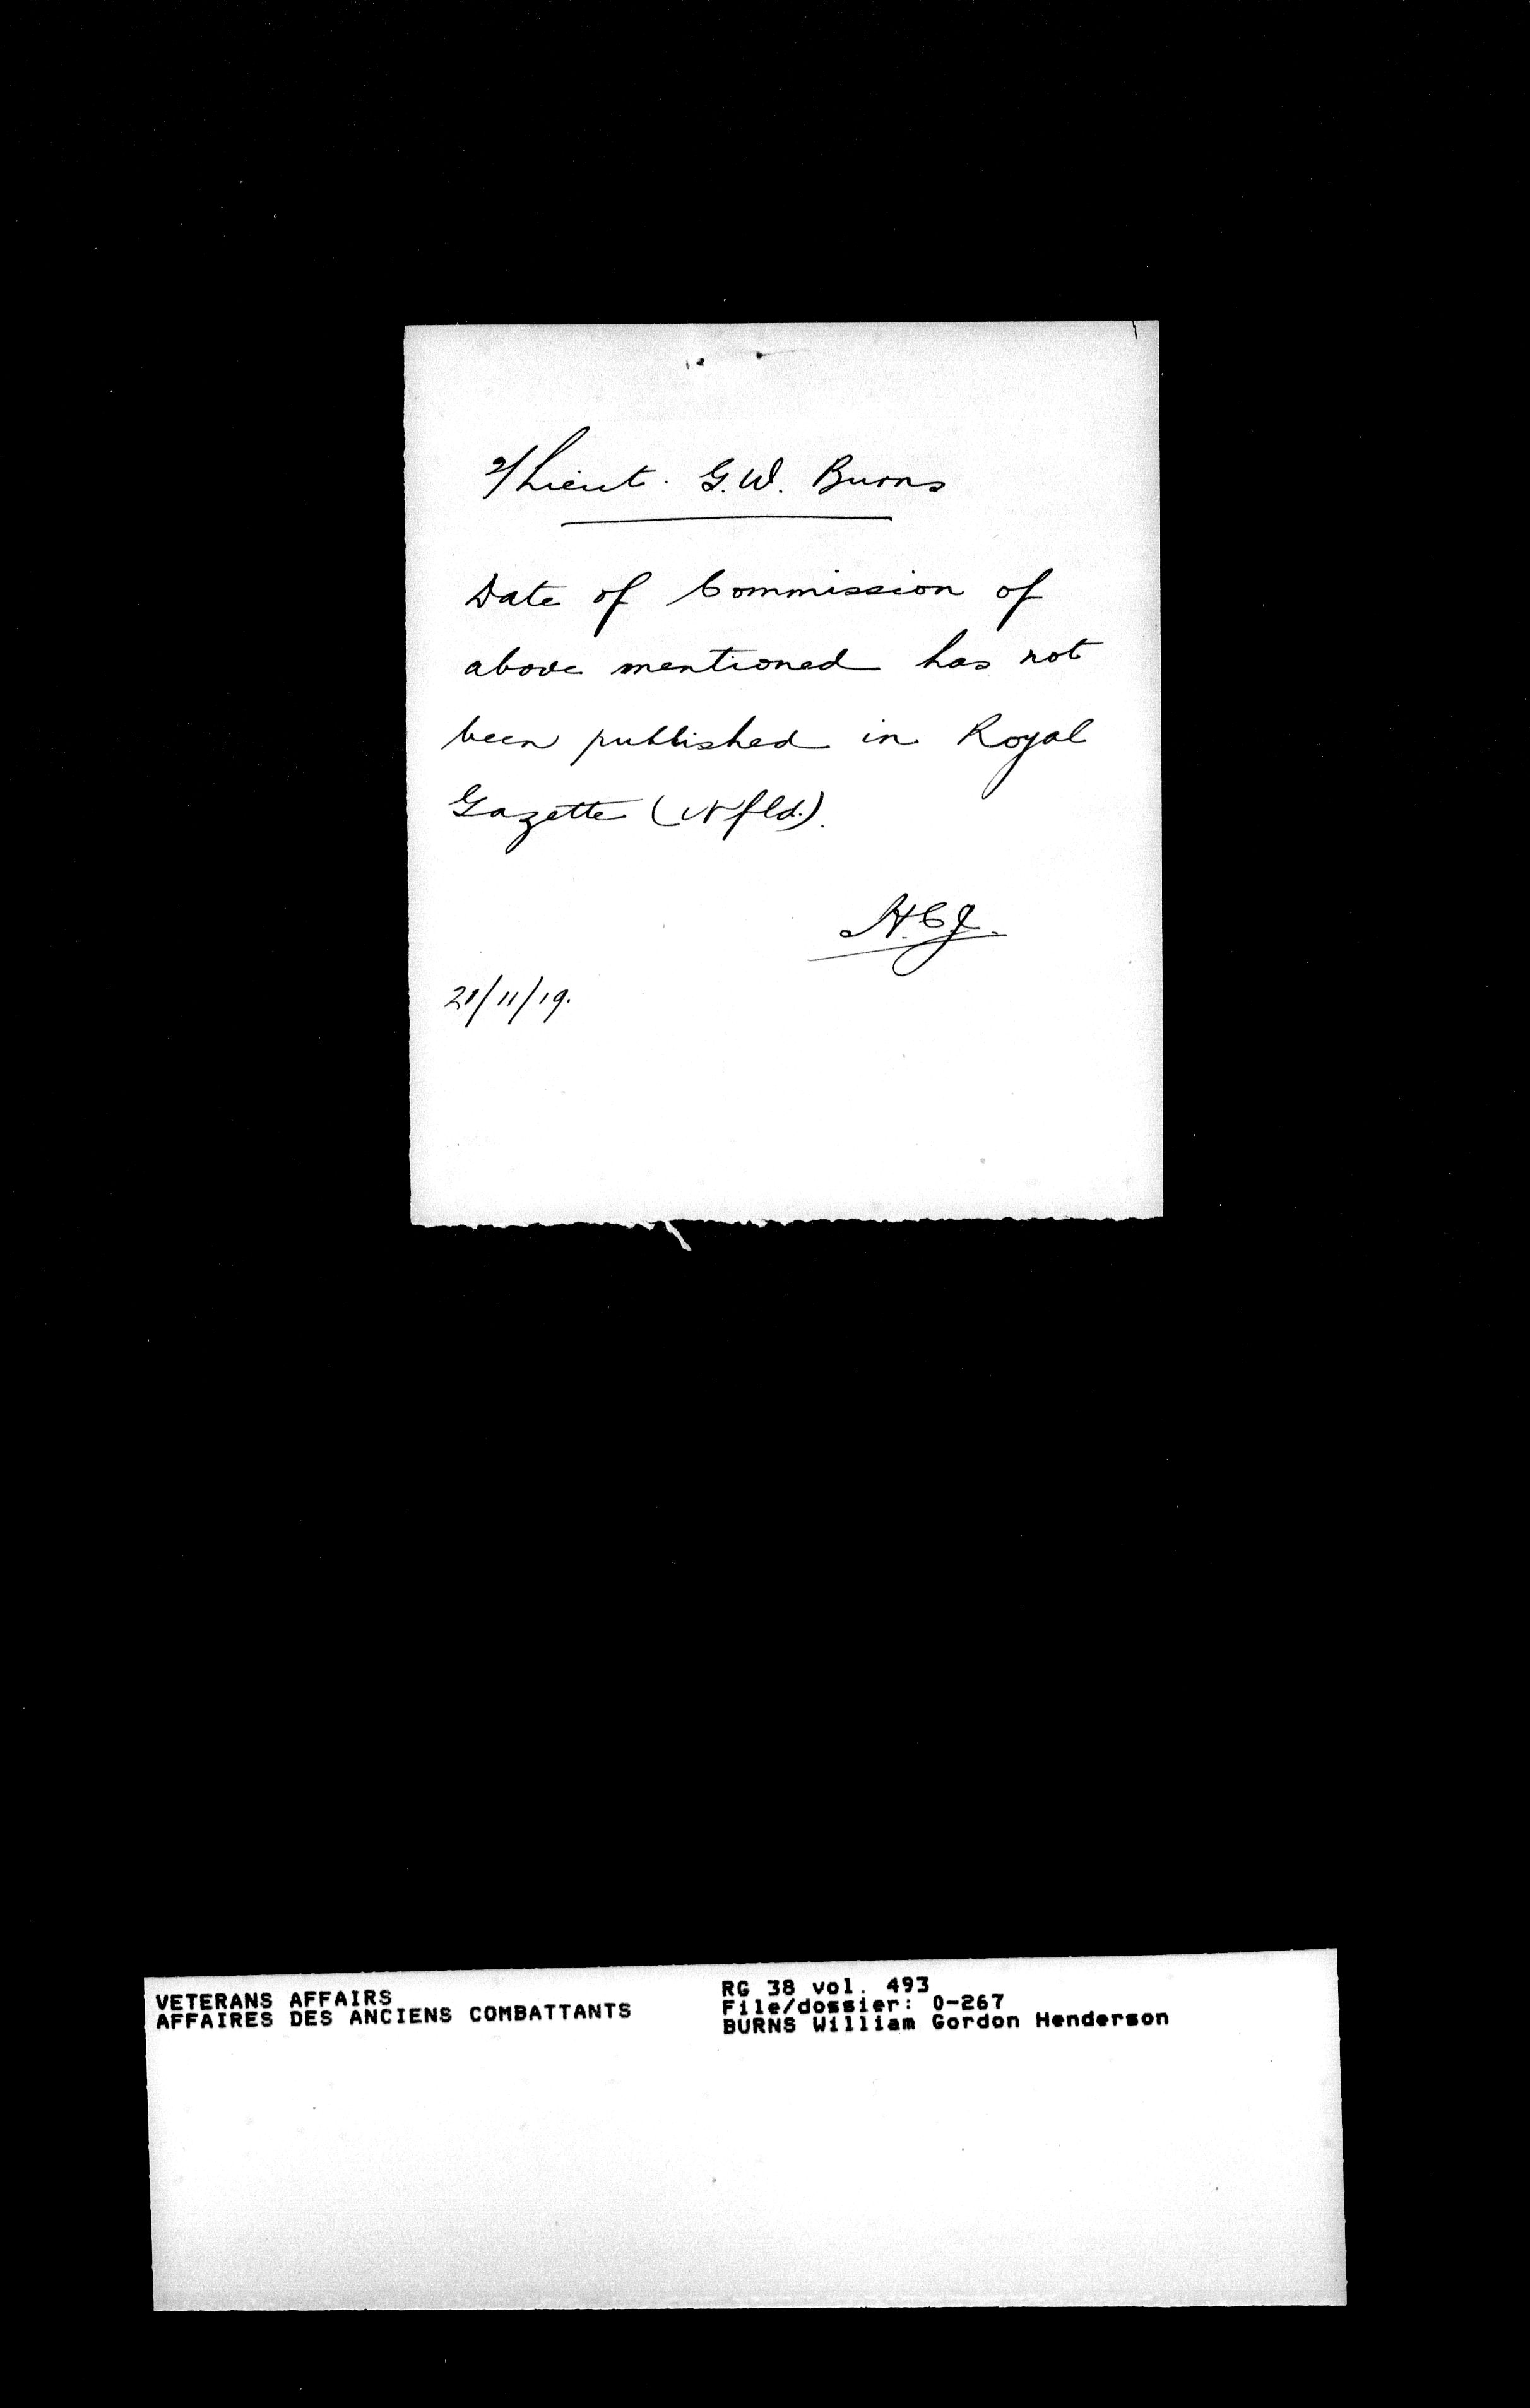 2/Lieut. G.W. Burns
Date of Commission of
above mentioned has not
been published in Royal
Gazette (Nfld.).
H.C.J.
21/11/19.
VETERANS AFFAIRS
AFFAIRES DES ANCIENS COMBATTANTS
RG 38 vol. 493
File/dossier: 0-267
BURNS William Gordon Henderson